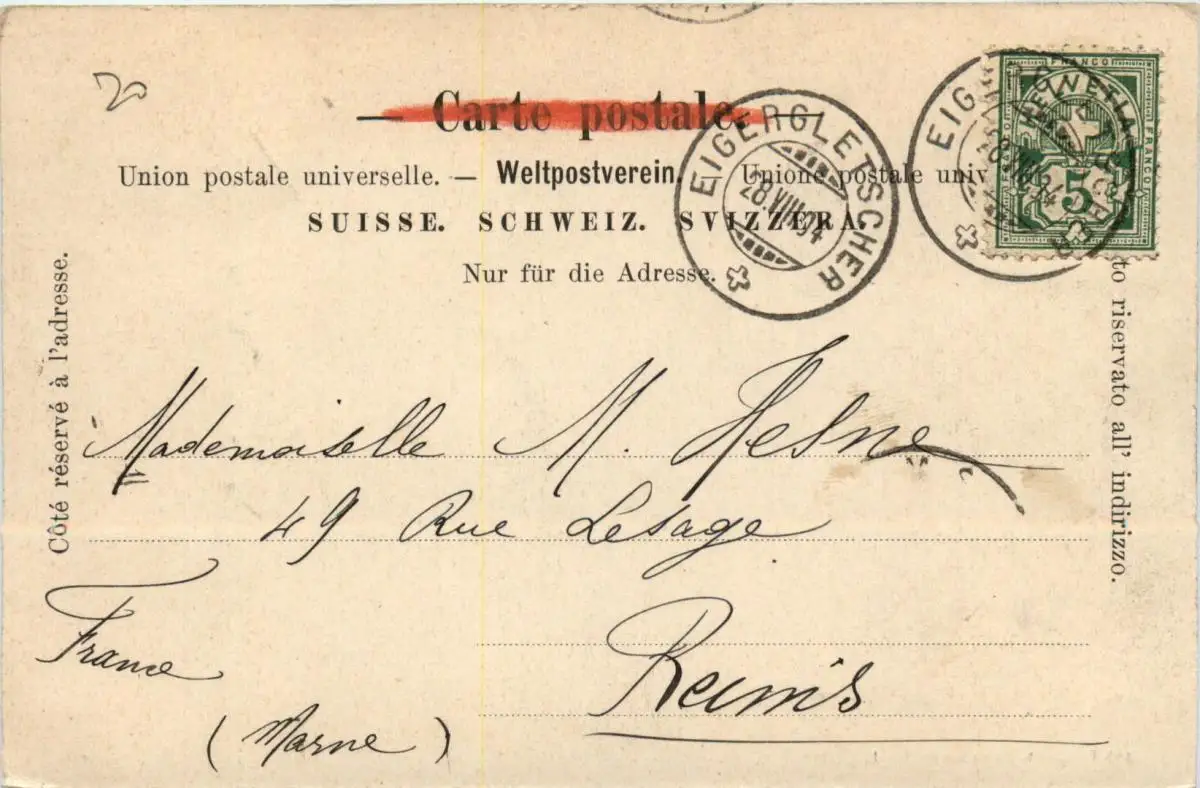 20
— Carte postale. —
Union postale universelle. — Weltpostverein. — Unione postale univ
SUISSE. SCHWEIZ. SVIZZERA.
Nur für die Adresse.
Côté réservé à l'adresse.
to riservato all' indirizzo.
EIGERGLETSCHER
28.VIII.04
EIG
FRANCO
HELVETIA
FRANCO
5
Mademoiselle M. Helne
49 Rue Lesage
Reims
France
(Marne)